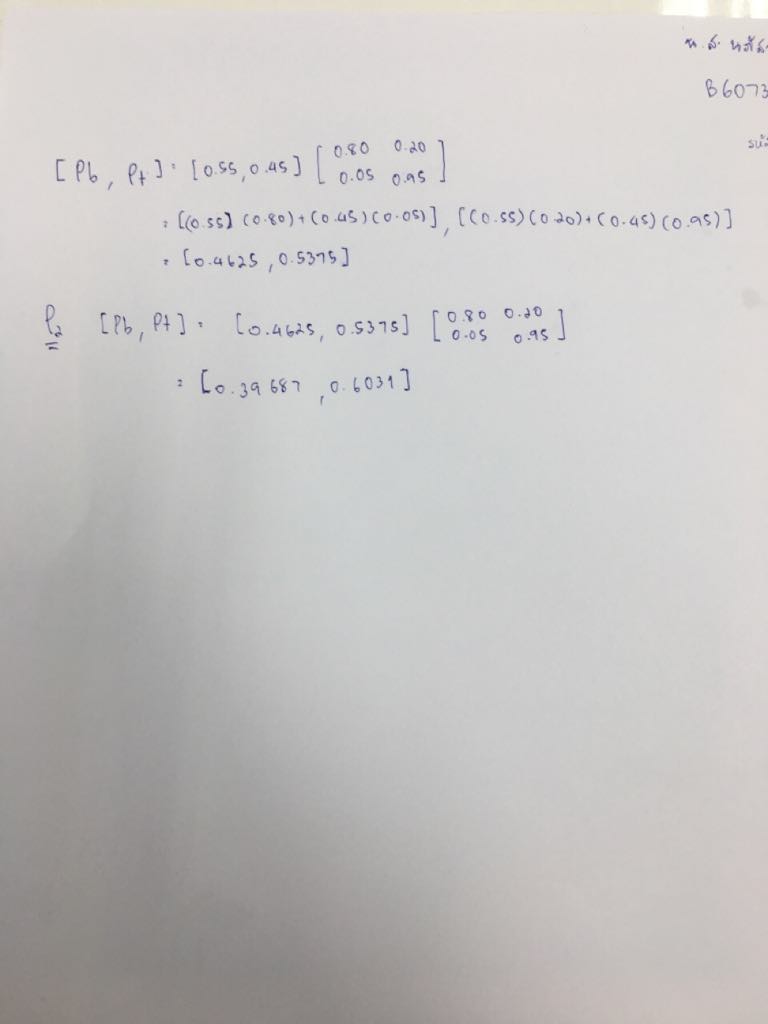 น.ส.
B6073
[Pb, Pt] = [0.55, 0.45] [0.80 0.20
0.05 0.95]
= [(0.55)(0.80)+(0.45)(0.05)], [(0.55)(0.20)+(0.45)(0.95)]
= [0.4625, 0.5375]
P2 [Pb, Pt] = [0.4625, 0.5375] [0.80 0.20
0.05 0.95]
= [0.39687, 0.6031]